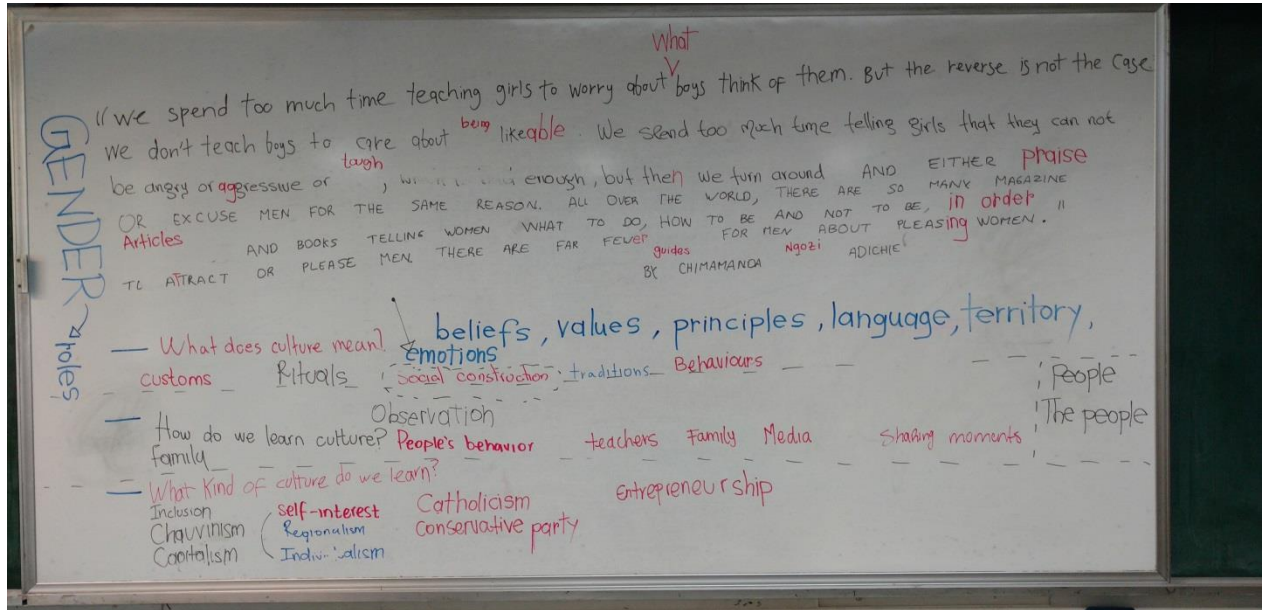 GENDER → roles
What
"we spend too much time teaching girls to worry about boys think of them. But the reverse is not the case
we don't teach boys to care about being likeable. We spend too much time telling girls that they can not
be angry or aggressive or tough, enough, but then we turn around AND EITHER praise
OR EXCUSE MEN FOR THE SAME REASON. ALL OVER THE WORLD, THERE ARE SO MANY MAGAZINE
Articles AND BOOKS TELLING WOMEN WHAT TO DO, HOW TO BE AND NOT TO BE, in order
TO ATTRACT OR PLEASE MEN THERE ARE FAR FEVer guides FOR MEN ABOUT PLEASing WOMEN."
BY CHIMAMANDA Ngozi ADICHIE
beliefs, values, principles, language, territory,
— What does culture mean? emotions
customs Rituals social construction traditions Behaviours People
Observation The people
— How do we learn culture? People's behavior teachers Family Media Sharing moments
family
— What Kind of culture do we learn?
Inclusion self-interest Catholicism Entrepreneurship
Chauvinism Regionalism conservative party
Capitalism